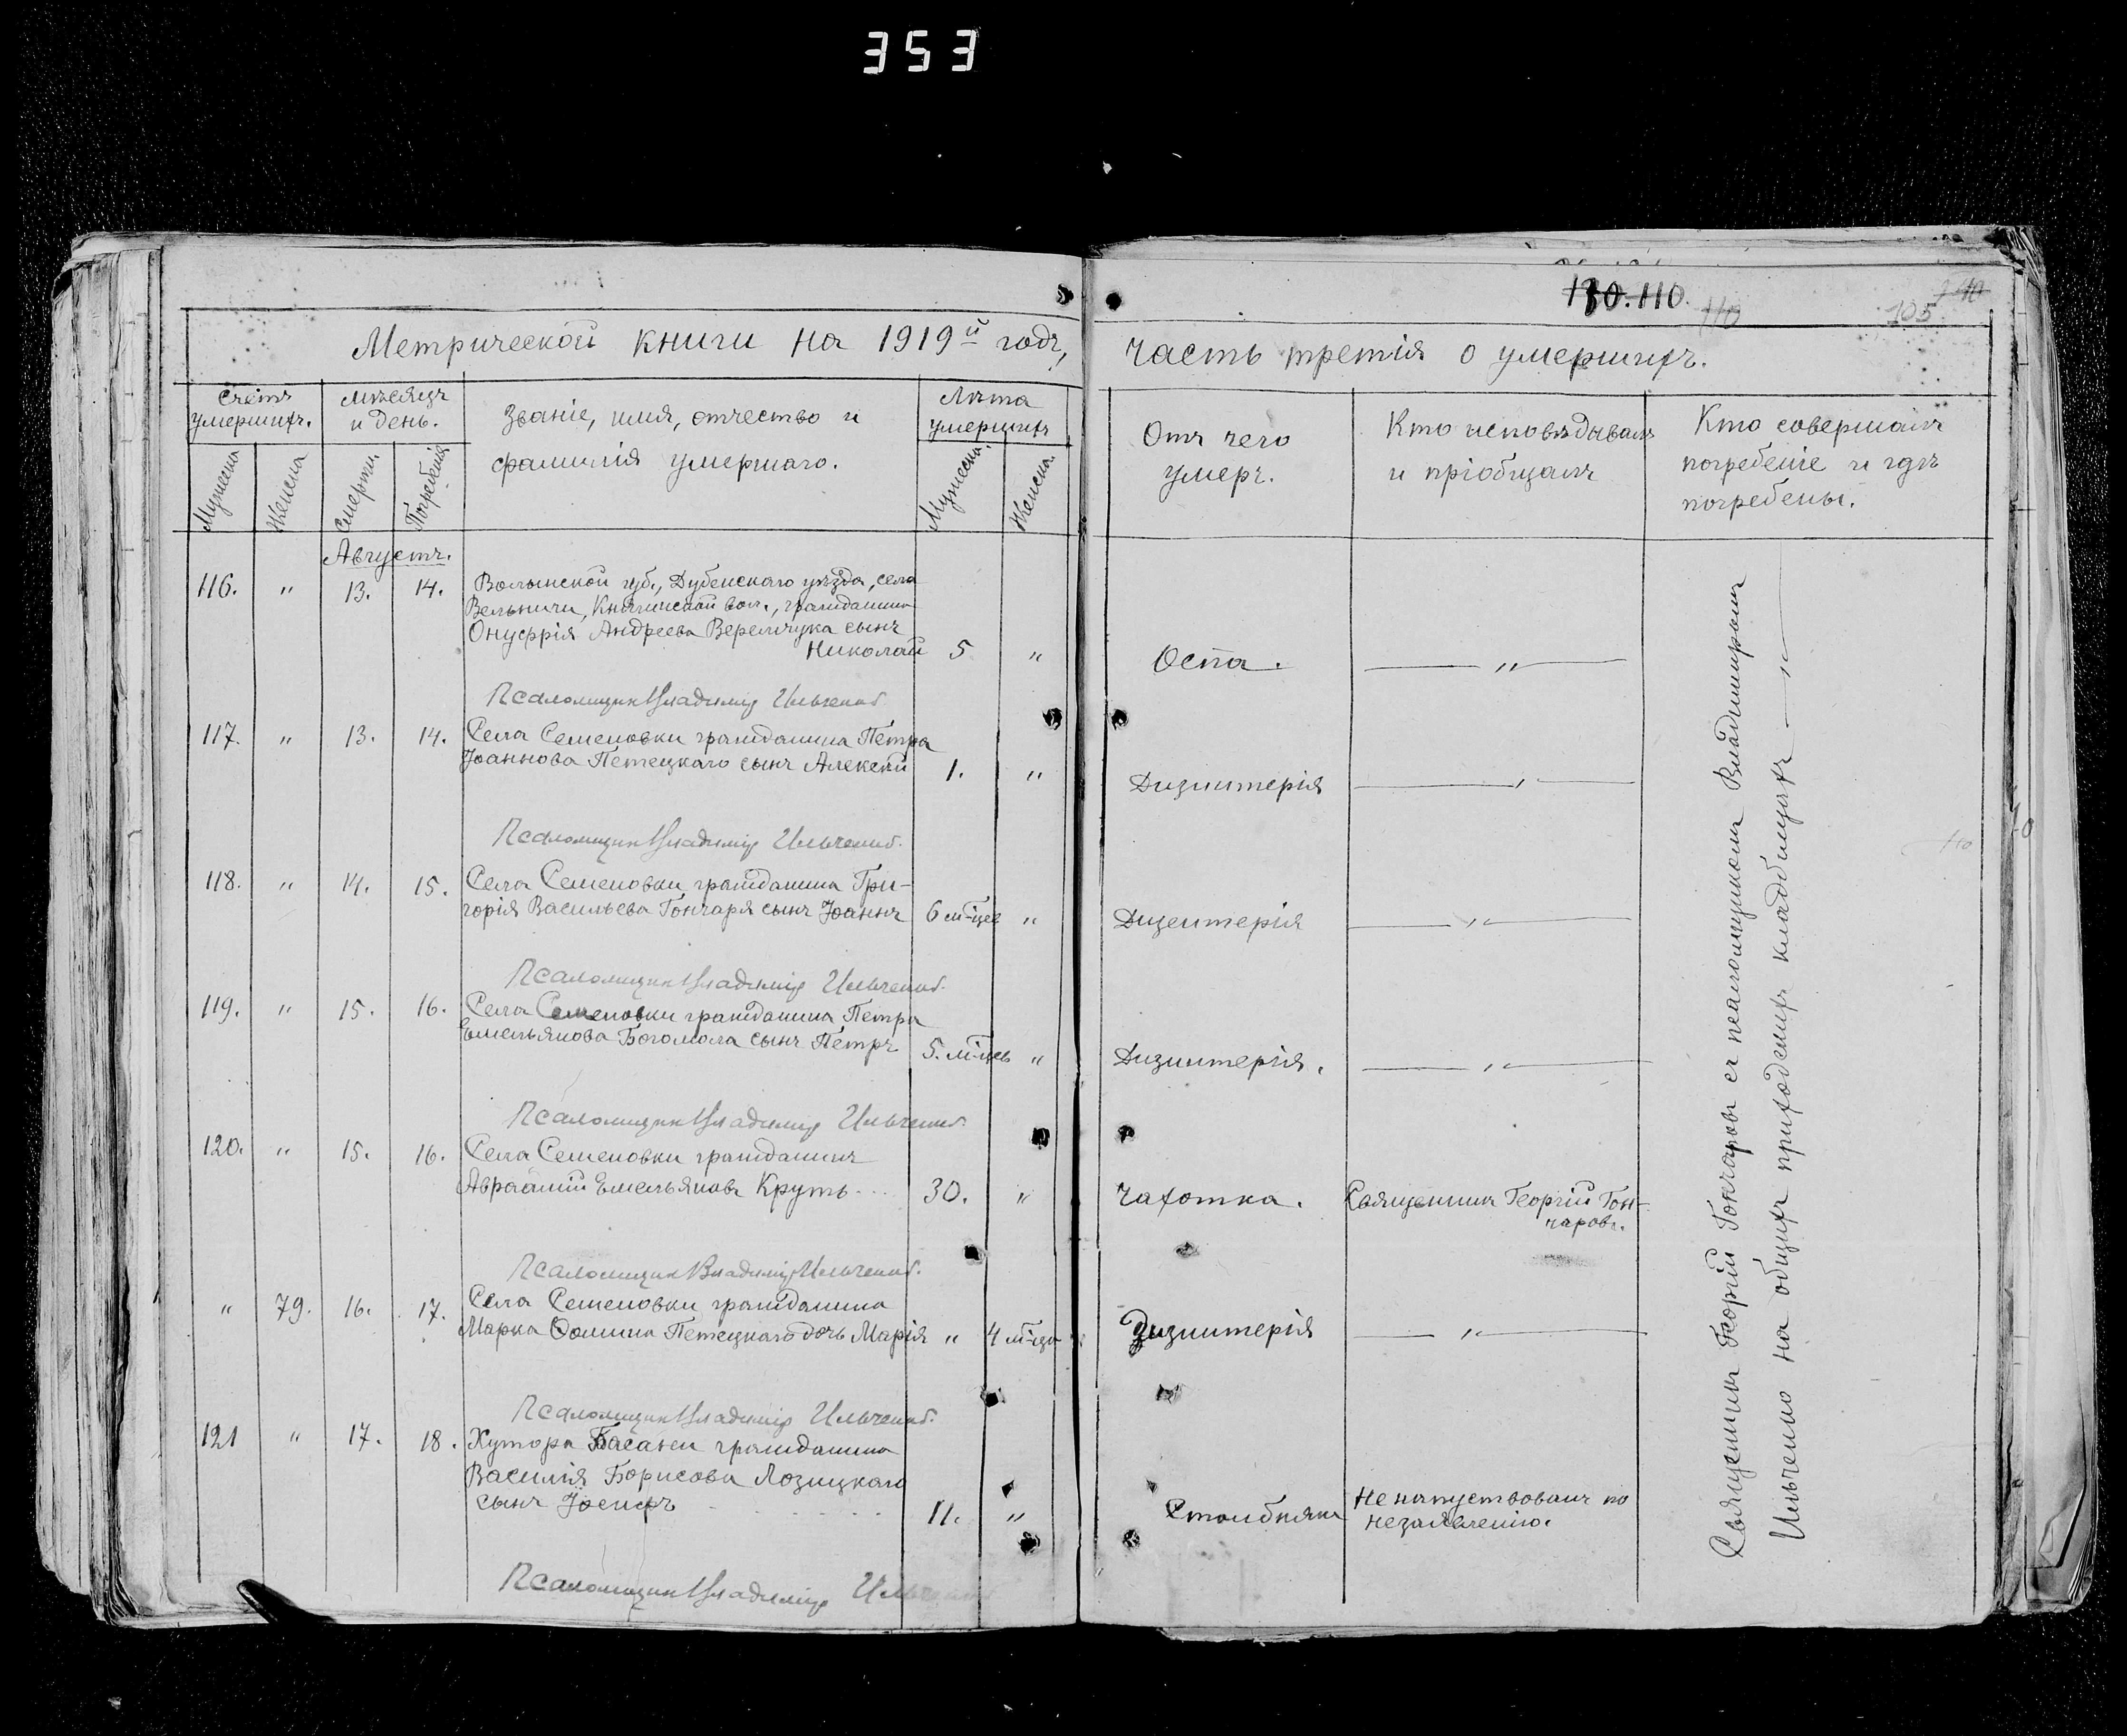 353
130. 110.
110
105
Метрической книги на 1919й годъ,
часть третія о умершихъ.
Счетъ умершихъ.
Мужеска
Женска
Мѣсяцъ и день.
Смерти.
Погребенія
Званіе, имя, отчество и
фамилія умершаго.
Лѣта умершихъ
Мужеска.
Женска.
Отъ чего
умеръ.
Кто исповѣдывалъ
и пріобщалъ
Кто совершалъ
погребеніе и гдѣ
погребены.
Августъ.
116. " 13. 14. Волынской губ., Дубенскаго уѣзда, села
Вельничи, Княгинской вол., гражданина
Онуфрія Андреева Веремчука сынъ
Николай 5 " Оспа. — " —
Псаломщикъ Владимір Ильченко.
117. " 13. 14. Села Семеновки гражданина Петра
Іоаннова Петецкаго сынъ Алексѣй 1. " Дизинтерія — " —
Псаломщикъ Владимір Ильченко.
118. " 14. 15. Села Семеновки гражданина Гри-
горія Васильева Гончаря сынъ Іоаннъ 6 м-цев " Дизентерія — " —
Псаломщикъ Владимір Ильченко.
119. " 15. 16. Села Семеновки гражданина Петра
Емельянова Богомола сынъ Петръ 5. м-цев " Дизинтерія. — " —
Псаломщикъ Владимір Ильченко.
120. " 15. 16. Села Семеновки гражданинъ
Авраамій Емельяновъ Круть... 30. " Чахотка. Священникъ Георгій Гон-
чаровъ.
Псаломщикъ Владимір Ильченко.
" 79. 16. 17. Села Семеновки гражданина
Марка Фомина Петецкаго дочь Марія " 4 м-ца Дизинтерія — " —
Псаломщикъ Владимір Ильченко.
121 " 17. 18. Хутора Басанки гражданина
Василія Борисова Лозицкаго
сынъ Іосифъ 11. " Столбнякъ Не напутствованъ по
незаявленію.
Псаломщикъ Владимір Ильченко
Священникъ Георгій Гончаровъ съ псаломщикомъ Владимиромъ
Ильченко на общихъ приходскихъ кладбищахъ — " —